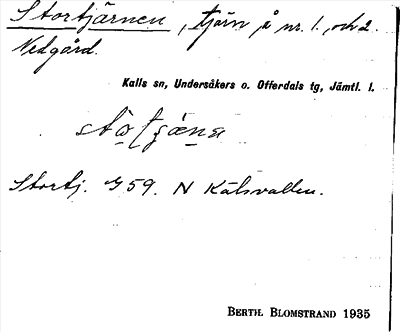 Stortjärnen, tjärn på nr. 1. och 2.
Nedgård.
Kalls sn, Undersåkers o. Offerdals tg, Jämtl. l.
Stortj. 59. N Kålsvallen.
BERTIL BLOMSTRAND 1935